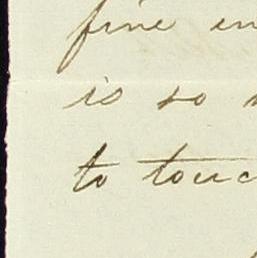 fine
is so
to touc